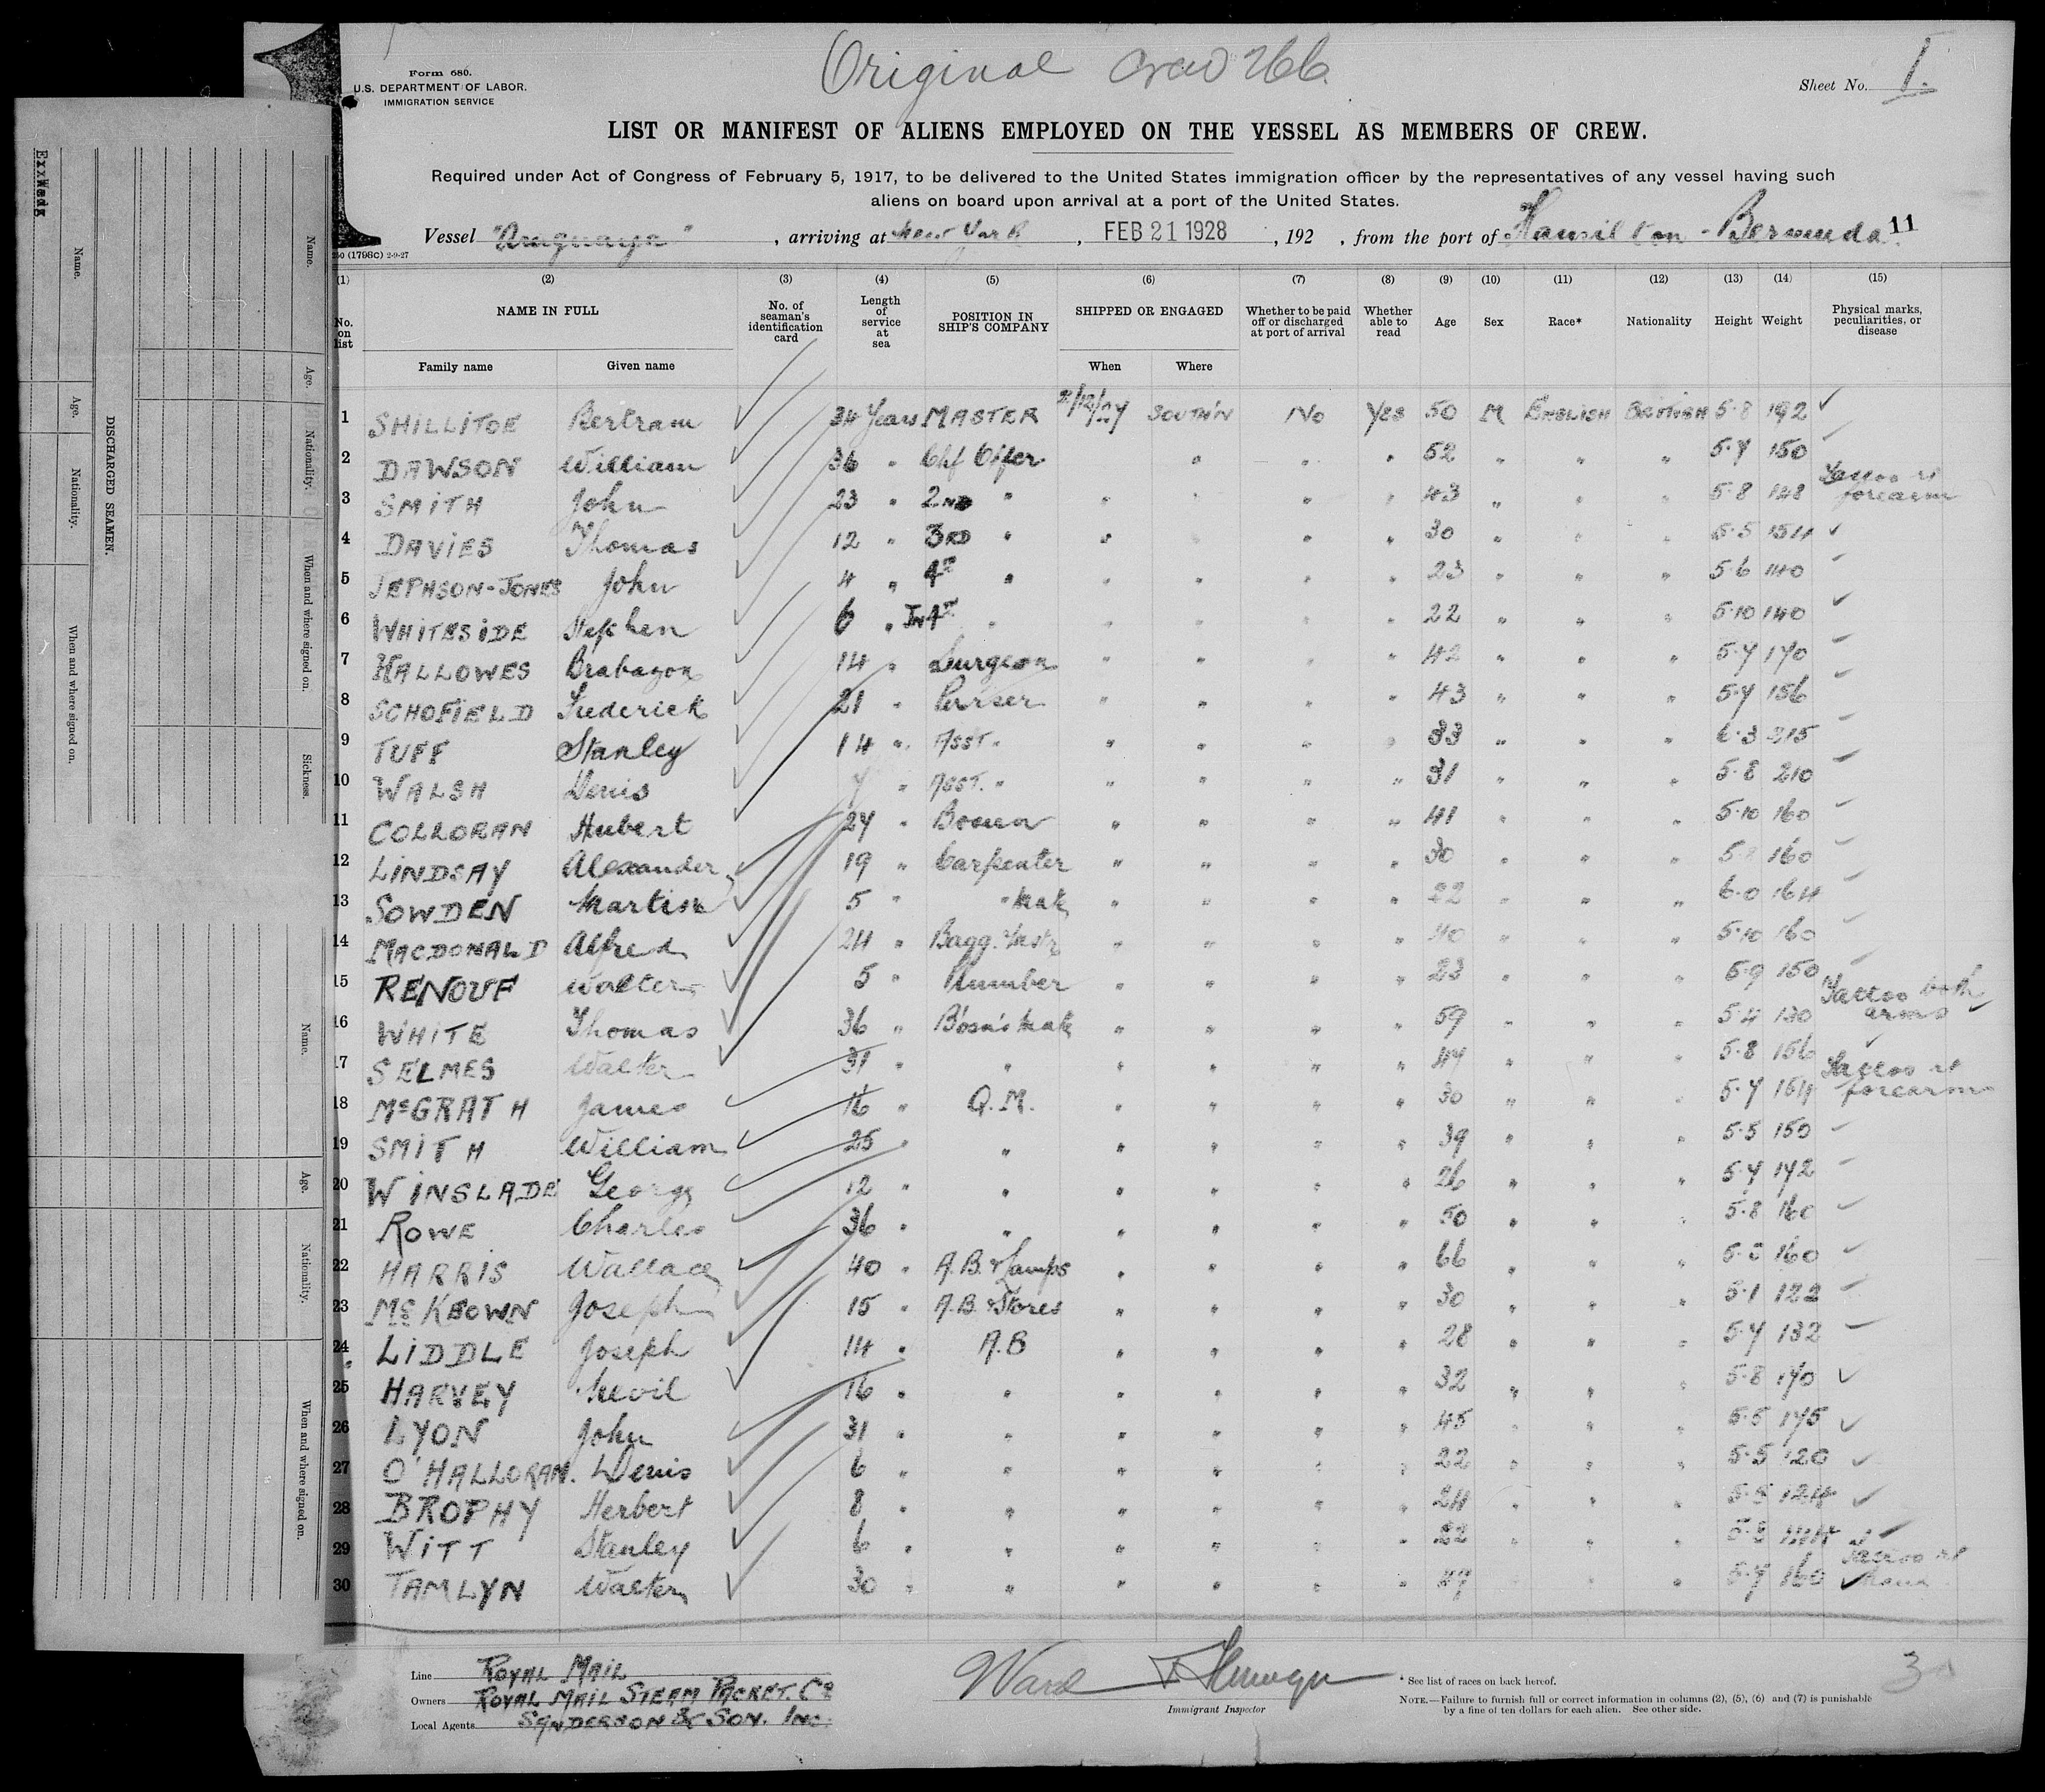 Original Crew 266.
Form 680.
U.S. DEPARTMENT OF LABOR.
IMMIGRATION SERVICE
Sheet No. 1.
LIST OR MANIFEST OF ALIENS EMPLOYED ON THE VESSEL AS MEMBERS OF CREW.
Required under Act of Congress of February 5, 1917, to be delivered to the United States immigration officer by the representatives of any vessel having such
aliens on board upon arrival at a port of the United States.
Vessel "Araguaya", arriving at New York, FEB 21 1928, 192 , from the port of Hamilton - Bermuda. 11
(1) (2) (3) (4) (5) (6) (7) (8) (9) (10) (11) (12) (13) (14) (15)
No. on list NAME IN FULL No. of seaman's identification card Length of service at sea POSITION IN SHIP'S COMPANY SHIPPED OR ENGAGED Whether to be paid off or discharged at port of arrival Whether able to read Age Sex Race* Nationality Height Weight Physical marks, peculiarities, or disease
Family name Given name When Where
1 SHILLITOE Bertram 34 Years MASTER SOUTH'N No Yes 50 M ENGLISH BRITISH 5·8 192 ✓
2 DAWSON William 36 " Chf Offcr " " " 52 " " " 5·7 150
3 SMITH John 23 " 2ND " " " " " 43 " " " 5·8 148 Tattoo rt forearm
4 DAVIES Thomas 12 " 3RD " " " " 30 " " " 5·5 154 ✓
5 JEPHSON-JONES John 4 " 4th " " " " " 23 " " " 5·6 140
6 WHITESIDE Stephen 6 " Jn 4th " " " " " 22 " " " 5·10 140 ✓
7 HALLOWES Brabazon 14 " Surgeon " " " " 42 " " " 5·7 170
8 SCHOFIELD Frederick 21 " Purser " " " " 43 " " " 5·7 156
9 TUFF Stanley 14 " ASST. " " " " " 33 " " " 6·3 215
10 WALSH Denis 7 " ASST. " " " " " 31 " " " 5·8 210
11 COLLORAN Hubert 27 " Bosun " " " " 41 " " " 5·10 160
12 LINDSAY Alexander 19 " Carpenter " " " " 30 " " " 5·8 160
13 SOWDEN Martin 5 " " Mate " " " " 22 " " " 6·0 164
14 MACDONALD Alfred 24 " Bagg. Mastr " " " " 40 " " " 5·10 160
15 RENOUF Walter 5 " Plumber " " " " 23 " " " 5·9 150
16 WHITE Thomas 36 " Bosn's Mate " " " " 59 " " " 5·4 130 Tattoo both arms
17 SELMES Walter 31 " " " " " " 47 " " " 5·8 156 ✓
18 McGRATH James 16 " Q.M. " " " " 30 " " " 5·7 154 Tattoo rt forearm
19 SMITH William 25 " " " " " " 39 " " " 5·5 150
20 WINSLADE George 12 " " " " " " 26 " " " 5·7 172
21 ROWE Charles 36 " " " " " " 50 " " " 5·8 160
22 HARRIS Wallace 40 " A.B. & Lamps " " " " 66 " " " 160
23 McKEOWN Joseph 15 " A.B. Stores " " " " 30 " " " 5·1 122
24 LIDDLE Joseph 14 " A.B " " " " 28 " " " 5·7 132
25 HARVEY Nevil 16 " " " " " " 32 " " " 5·8 170 ✓
26 LYON John 31 " " " " " " 45 " " " 5·5 175 ✓
27 O'HALLORAN. Denis 6 " " " " " " 22 " " " 5·5 120 ✓
28 BROPHY Herbert 8 " " " " " " 24 " " " 5·5 124 ✓
29 WITT Stanley 6 " " " " " " 22 " " " 144 ✓
30 TAMLYN Walter 30 " " " " " " 47 " " " 5·7 160 Tattoo rt hand
Line Royal Mail
Owners Royal Mail Steam Packet. Co
Local Agents Sanderson & Son. Inc.
Ward
Immigrant Inspector
* See list of races on back hereof.
NOTE.—Failure to furnish full or correct information in columns (2), (5), (6) and (7) is punishable
by a fine of ten dollars for each alien. See other side.
250 (1798C) 2-9-27
DISCHARGED SEAMEN.
Name. Age. Nationality. When and where signed on.
Name. Age. Nationality. When and where signed on. Sickness.
Name. Age. Nationality. When and where signed on.